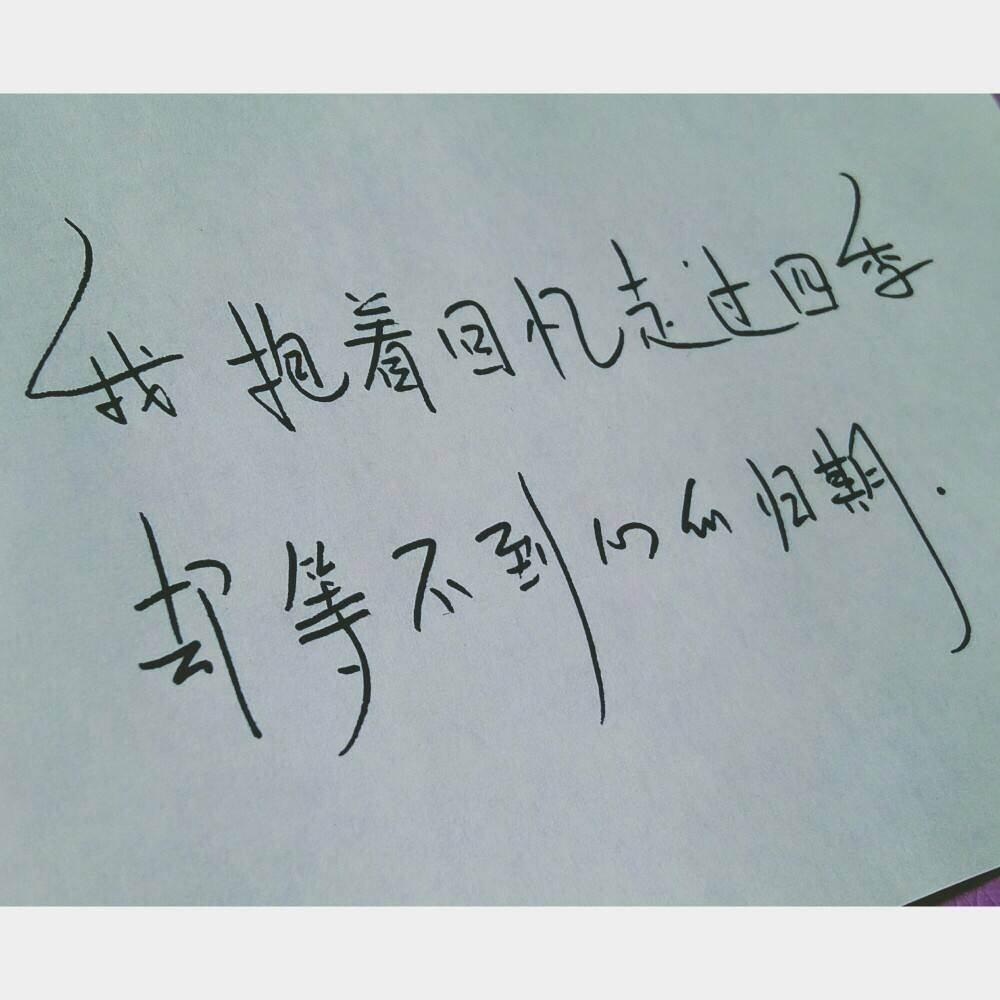 我抱着回忆走过四季
却等不到心的归期.